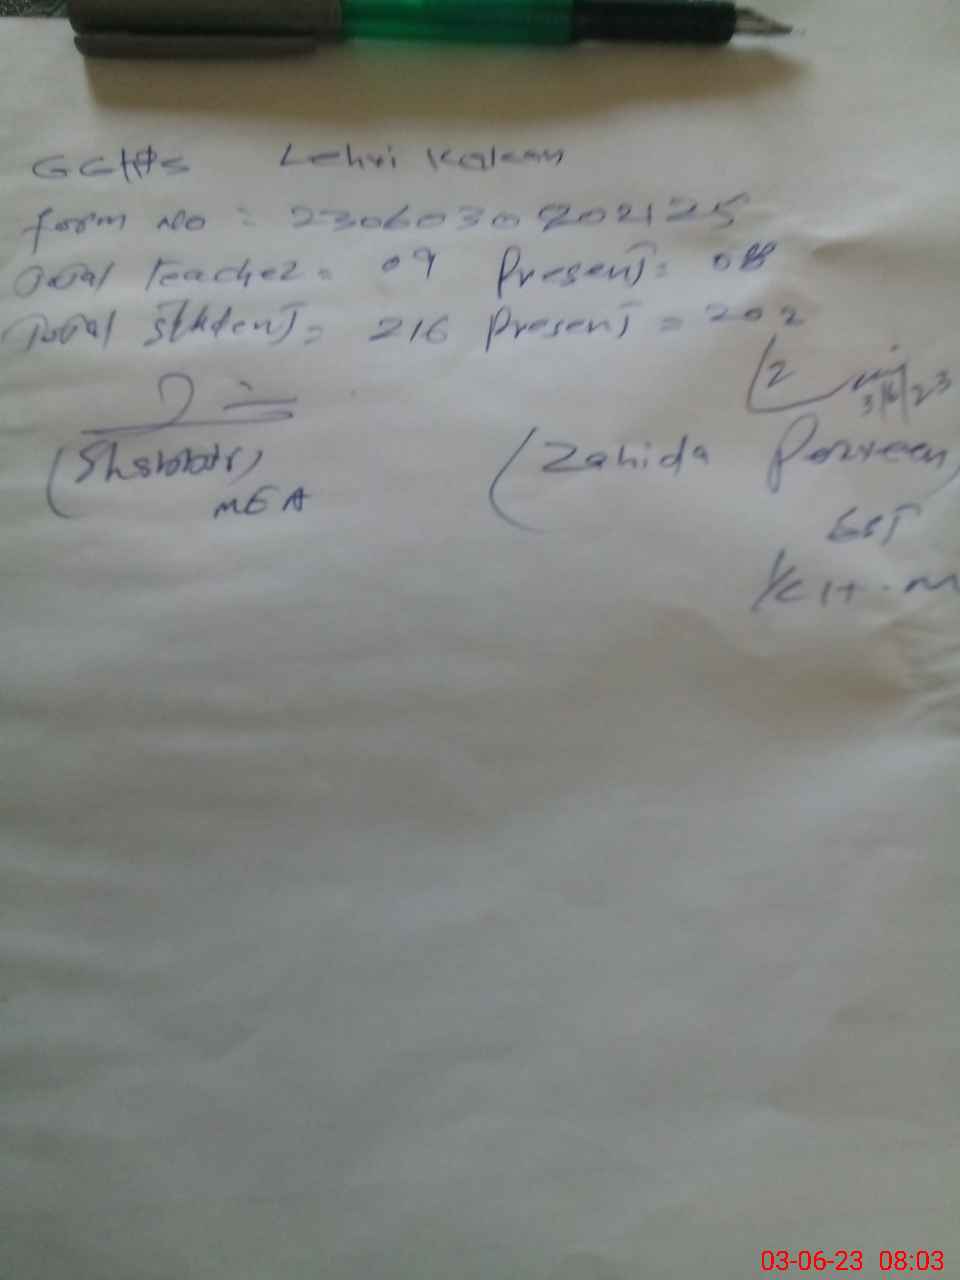 GGHPS Lehri Kalaan
form no = 2306030202125
Total teacher = 09 Present = 08
Total student = 216 Present = 202
3/6/23
(
MEA
(Zahida Parveen)
EST
I/C H.M
03-06-23 08:03